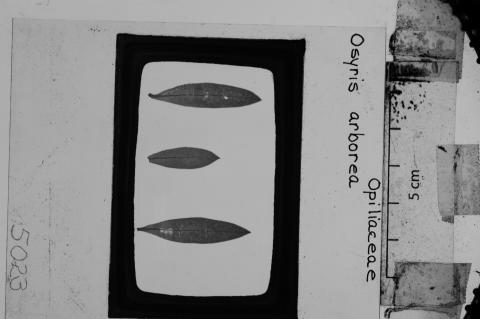 Osyris arborea
Opiliaceae
5 cm
5023